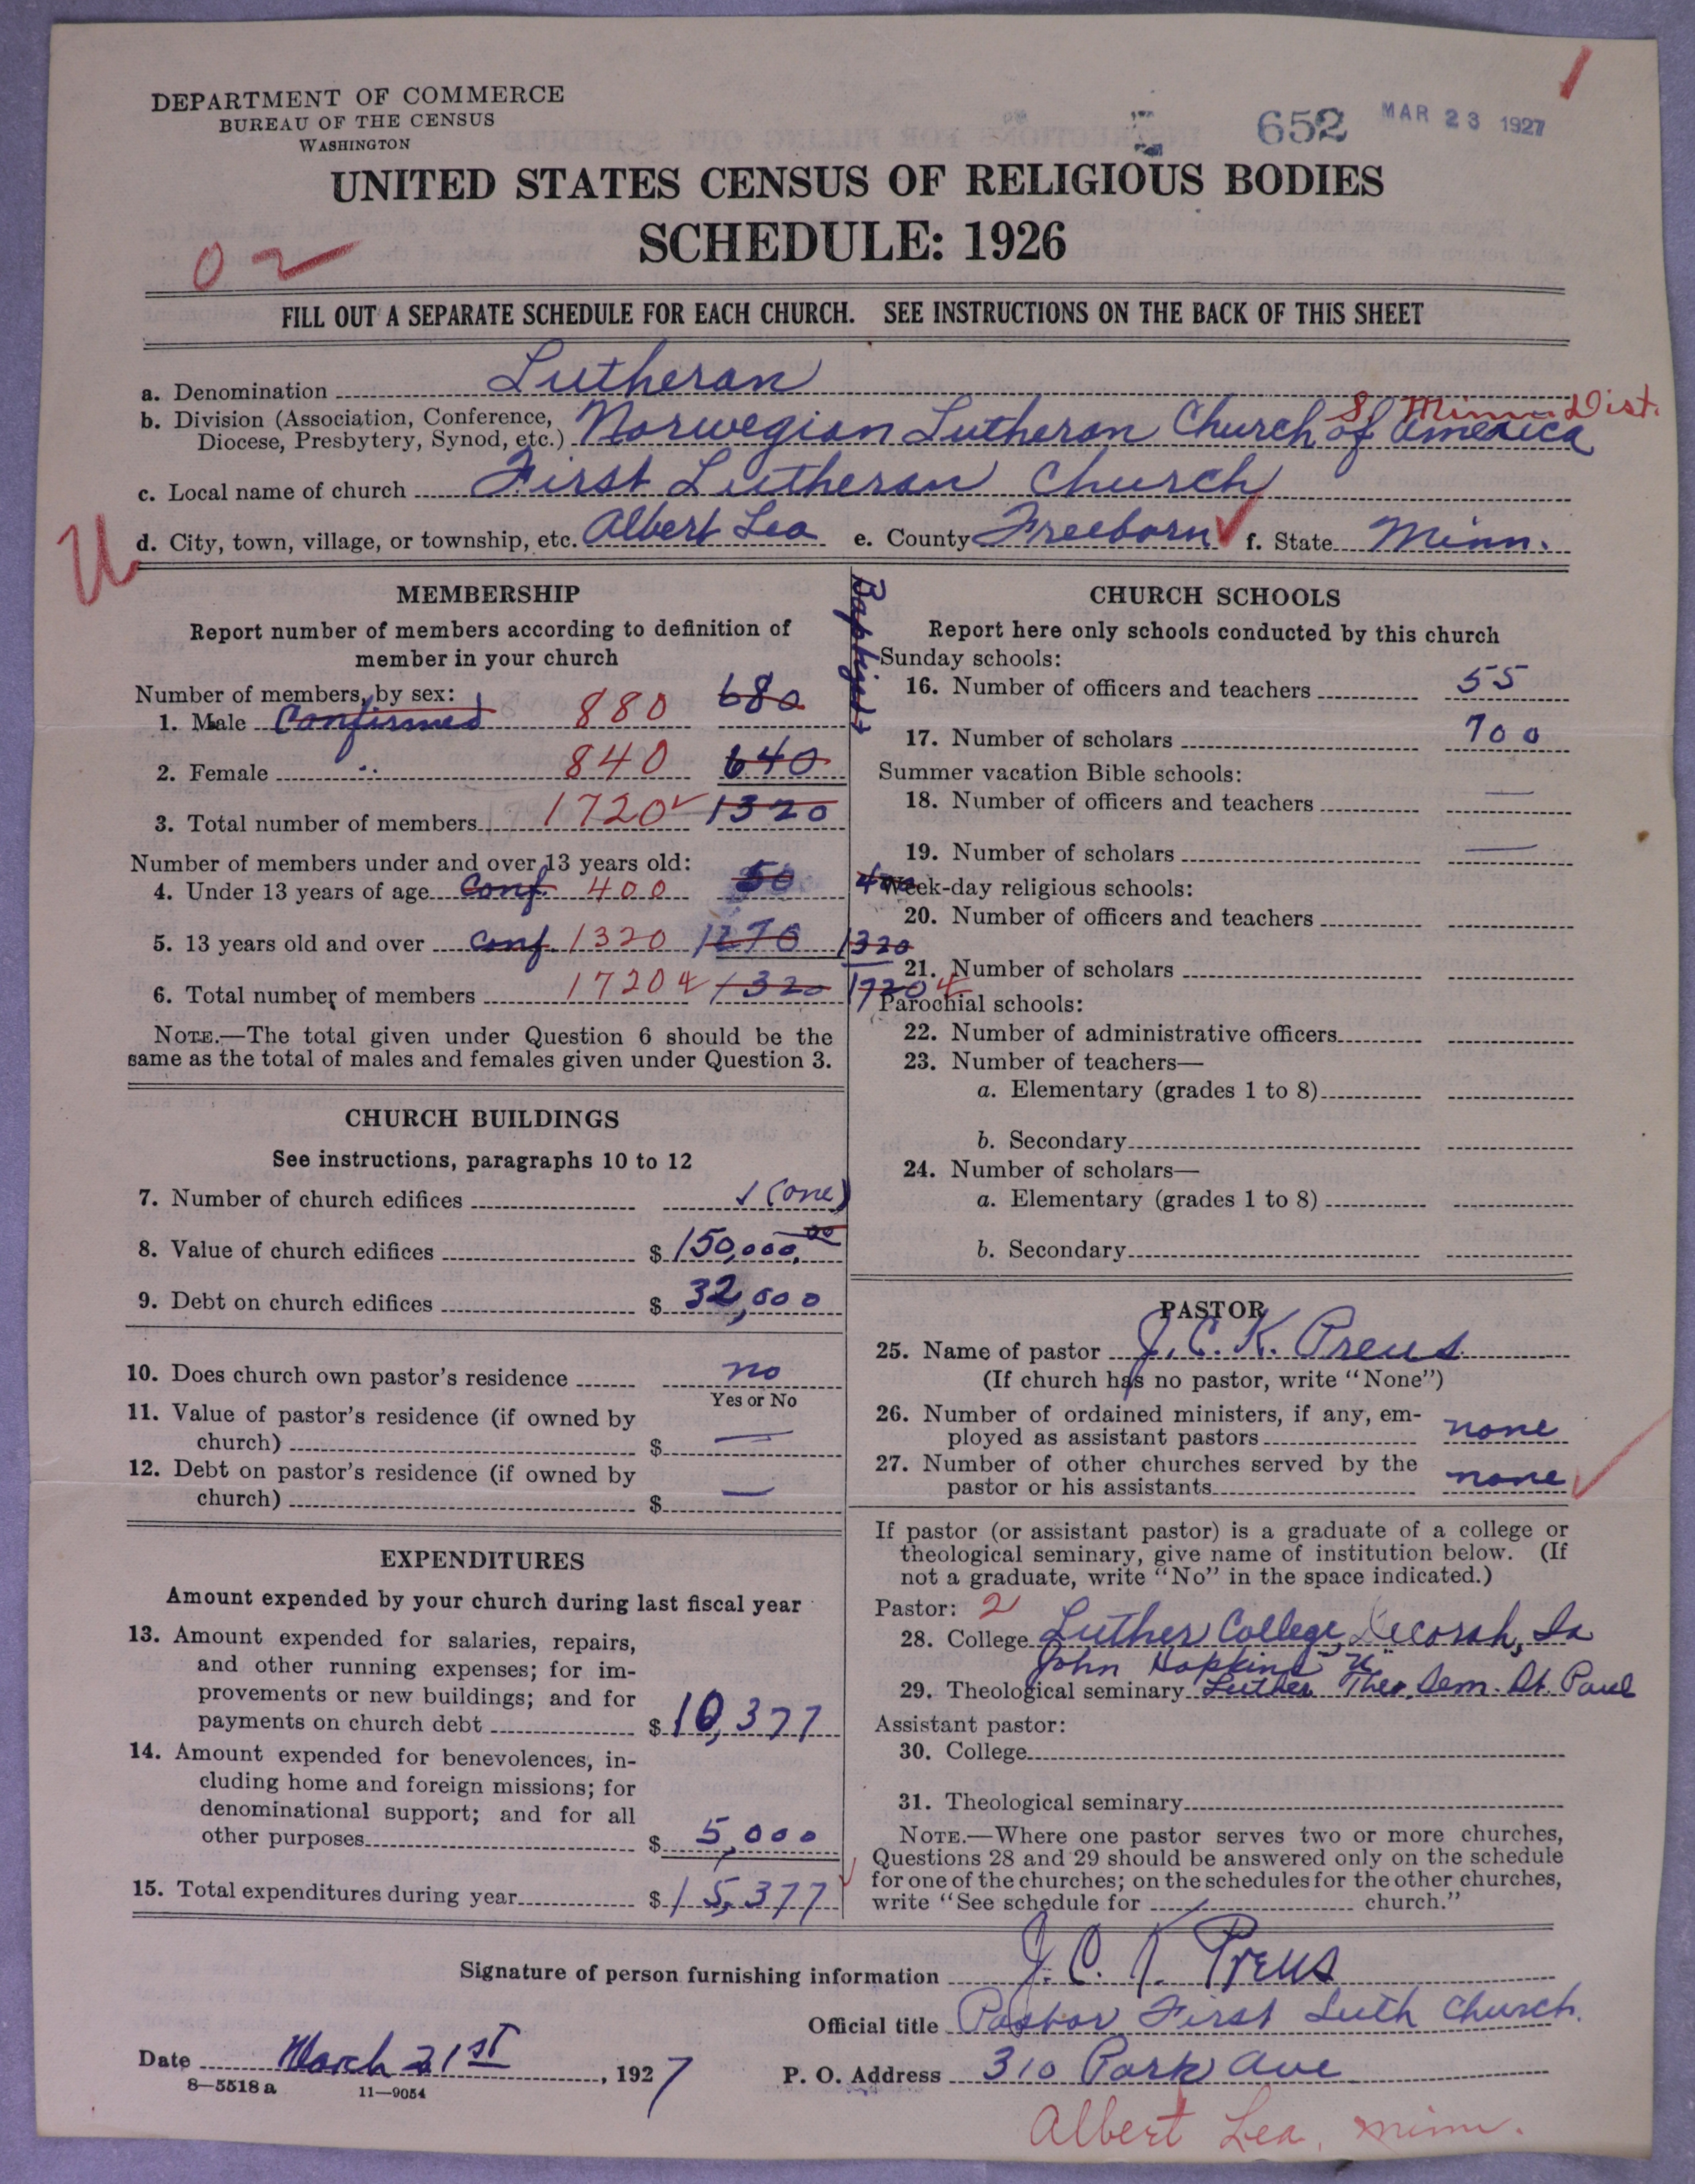 DEPARTMENT OF COMMERCE
BUREAU OF THE CENSUS
WASHINGTON
652 MAR 23 1927
UNITED STATES CENSUS OF RELIGIOUS BODIES
SCHEDULE: 1926
02
FILL OUT A SEPARATE SCHEDULE FOR EACH CHURCH. SEE INSTRUCTIONS ON THE BACK OF THIS SHEET
a. Denomination Lutheran
S. Minn. Dist.
b. Division (Association, Conference,
Diocese, Presbytery, Synod, etc.) Norwegian Lutheran Church of America
c. Local name of church First Lutheran Church
d. City, town, village, or township, etc. Albert Lea e. County Freeborn f. State Minn.
MEMBERSHIP
Report number of members according to definition of
member in your church
Number of members, by sex:
1. Male Confirmed 880 680
2. Female 840 640
3. Total number of members 1720 1320
Number of members under and over 13 years old:
4. Under 13 years of age Conf. 400 50 400
5. 13 years old and over Conf. 1320 1270 1320
6. Total number of members 1720 1320 1720
NOTE.—The total given under Question 6 should be the
same as the total of males and females given under Question 3.
CHURCH BUILDINGS
See instructions, paragraphs 10 to 12
7. Number of church edifices 1 (one)
8. Value of church edifices $ 150,000.00
9. Debt on church edifices $ 32,000
10. Does church own pastor's residence no
Yes or No
11. Value of pastor's residence (if owned by
church) $ —
12. Debt on pastor's residence (if owned by
church) $ —
EXPENDITURES
Amount expended by your church during last fiscal year
13. Amount expended for salaries, repairs,
and other running expenses; for im-
provements or new buildings; and for
payments on church debt $ 10,377
14. Amount expended for benevolences, in-
cluding home and foreign missions; for
denominational support; and for all
other purposes $ 5,000
15. Total expenditures during year $ 15,377
Baptized
CHURCH SCHOOLS
Report here only schools conducted by this church
Sunday schools:
16. Number of officers and teachers 55
17. Number of scholars 700
Summer vacation Bible schools:
18. Number of officers and teachers —
19. Number of scholars —
Week-day religious schools:
20. Number of officers and teachers
21. Number of scholars
Parochial schools:
22. Number of administrative officers
23. Number of teachers—
a. Elementary (grades 1 to 8)
b. Secondary
24. Number of scholars—
a. Elementary (grades 1 to 8)
b. Secondary
PASTOR
25. Name of pastor J. C. K. Preus
(If church has no pastor, write "None")
26. Number of ordained ministers, if any, em-
ployed as assistant pastors none
27. Number of other churches served by the
pastor or his assistants none
If pastor (or assistant pastor) is a graduate of a college or
theological seminary, give name of institution below. (If
not a graduate, write "No" in the space indicated.)
Pastor: 2
28. College Luther College, Decorah, Ia
John Hopkins U
29. Theological seminary Luther Theo. Sem. St. Paul
Assistant pastor:
30. College
31. Theological seminary
NOTE.—Where one pastor serves two or more churches,
Questions 28 and 29 should be answered only on the schedule
for one of the churches; on the schedules for the other churches,
write "See schedule for church."
Signature of person furnishing information J. C. K. Preus
Official title Pastor First Luth Church.
Date March 21st, 1927 P. O. Address 310 Park Ave
8—5518 a 11—9054
Albert Lea, Minn.